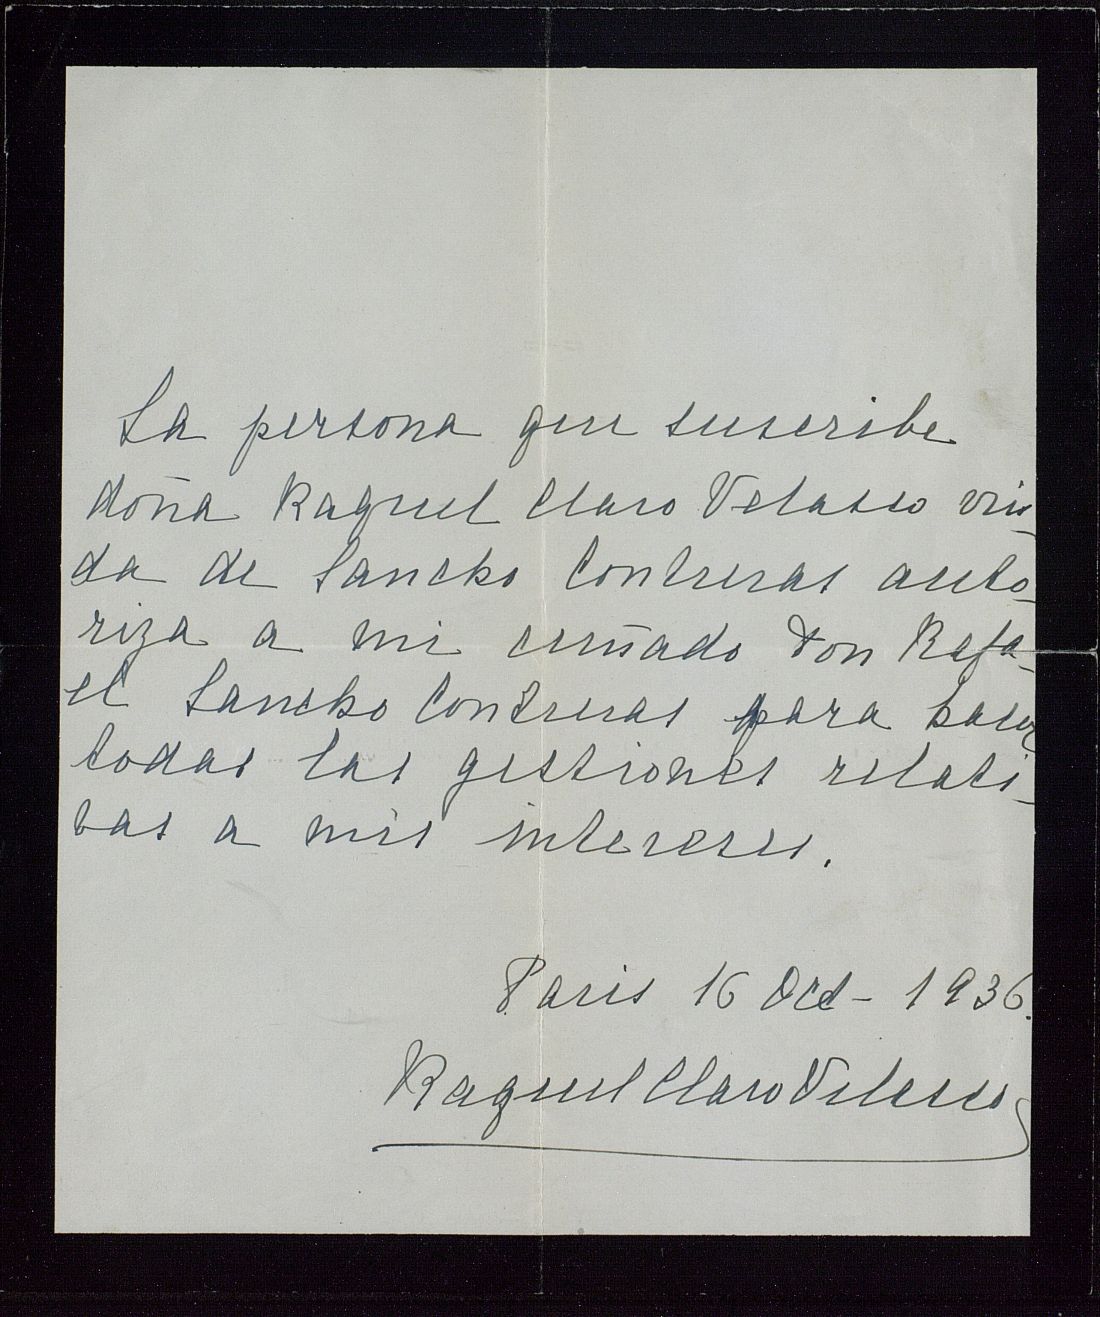 La persona que suscribe
doña Raquel Claro Velasco viu-
da de Sancho Contreras auto-
riza a mi cuñado Don Rafa-
el Sancho Contreras para hacer
todas las gestiones relati-
bas a mis intereses.
Paris 16 Oct - 1936.
Raquel Claro Velasco